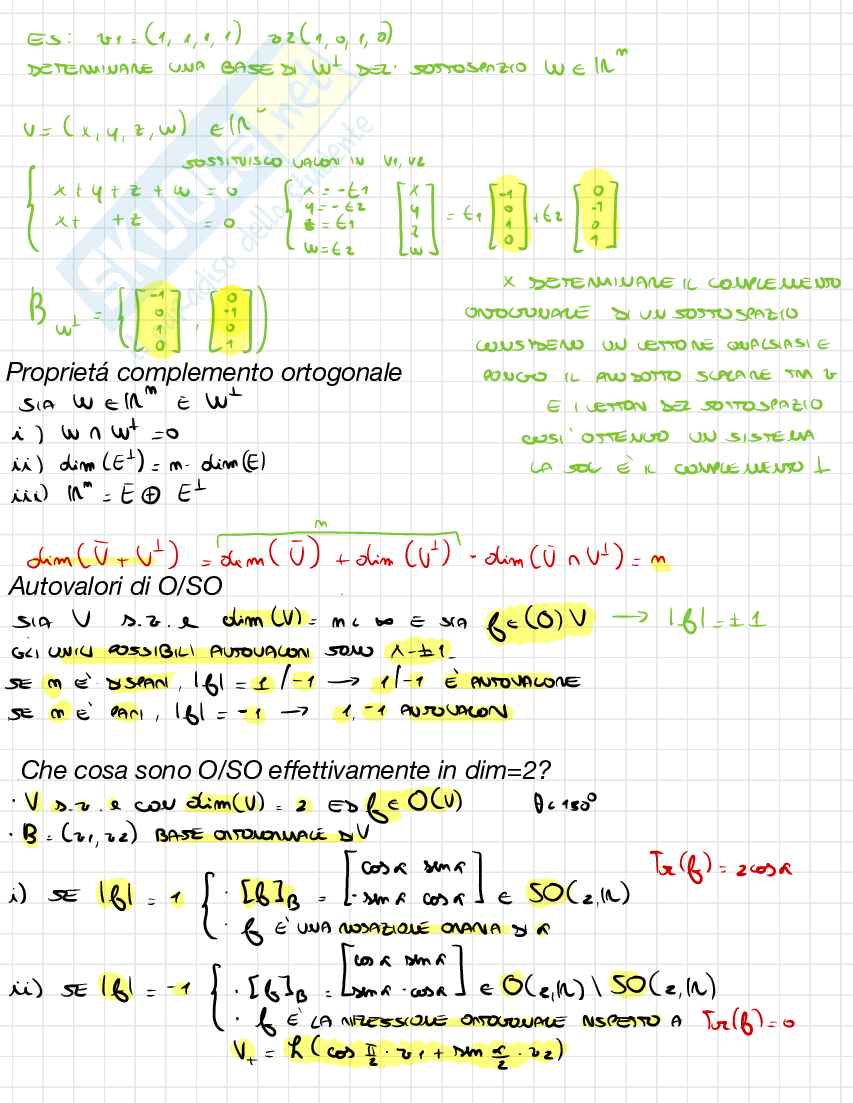 ES: v1=(1,1,1,1) v2(1,0,1,0)
DETERMINARE UNA BASE DI W⊥ DEL SOTTOSPAZIO W ∈ ℝⁿ
V=(x,y,z,w) ∈ ℝ
SOSTITUISCO VALORI IN V1, V2
{ x+y+z+w=0 { x=-t1 [x] [-1] [0]
x+ +z =0 y=-t2 [y] = t1 [0] + t2 [-1]
z=t1 [z] [1] [0]
w=t2 [w] [0] [1]
B_W⊥ = { [-1 0 1 0], [0 -1 0 1] }
X DETERMINARE IL COMPLEMENTO
ORTOGONALE DI UN SOTTOSPAZIO
CONSIDERO UN VETTORE QUALSIASI E
PONGO IL PRODOTTO SCALARE TRA V
E I VETTORI DEL SOTTOSPAZIO
COSI' OTTENGO UN SISTEMA
LA SOL È IL COMPLEMENTO ⊥
Proprietá complemento ortogonale
SIA W ∈ ℝⁿ E W⊥
i) W ∩ W⊥ =0
ii) dim(E⊥)= n- dim(E)
iii) ℝⁿ = E ⊕ E⊥
n
dim(U + U⊥) = dim(U) + dim(U⊥) - dim(U ∩ U⊥) = n
Autovalori di O/SO
SIA V s.v.e dim(V)= n < ∞ E SIA f∈(O)V → |f|=±1
GLI UNICI POSSIBILI AUTOVALORI SONO λ=±1
SE n E' DISPARI, |f| = 1/-1 → 1/-1 È AUTOVALORE
SE n E' PARI, |f| = -1 → 1,-1 AUTOVALORI
Che cosa sono O/SO effettivamente in dim=2?
· V s.v.e CON dim(V) = 2 ED f∈O(V) θ<180°
· B = (v1,v2) BASE ORTONORMALE DI V
Tr(f) = 2cosα
i) SE |f| = 1 { · [f]_B = [cosα sinα; -sinα cosα] ∈ SO(2,ℝ)
· f E' UNA ROTAZIONE ORARIA DI α
ii) SE |f| = -1 { · [f]_B = [cosα sinα; sinα -cosα] ∈ O(2,ℝ) \ SO(2,ℝ)
· f E' LA RIFLESSIONE ORTOGONALE RISPETTO A Tr(f)=0
V+ = L(cos π/2 · v1 + sin α/2 · v2)
SKUOLA.net